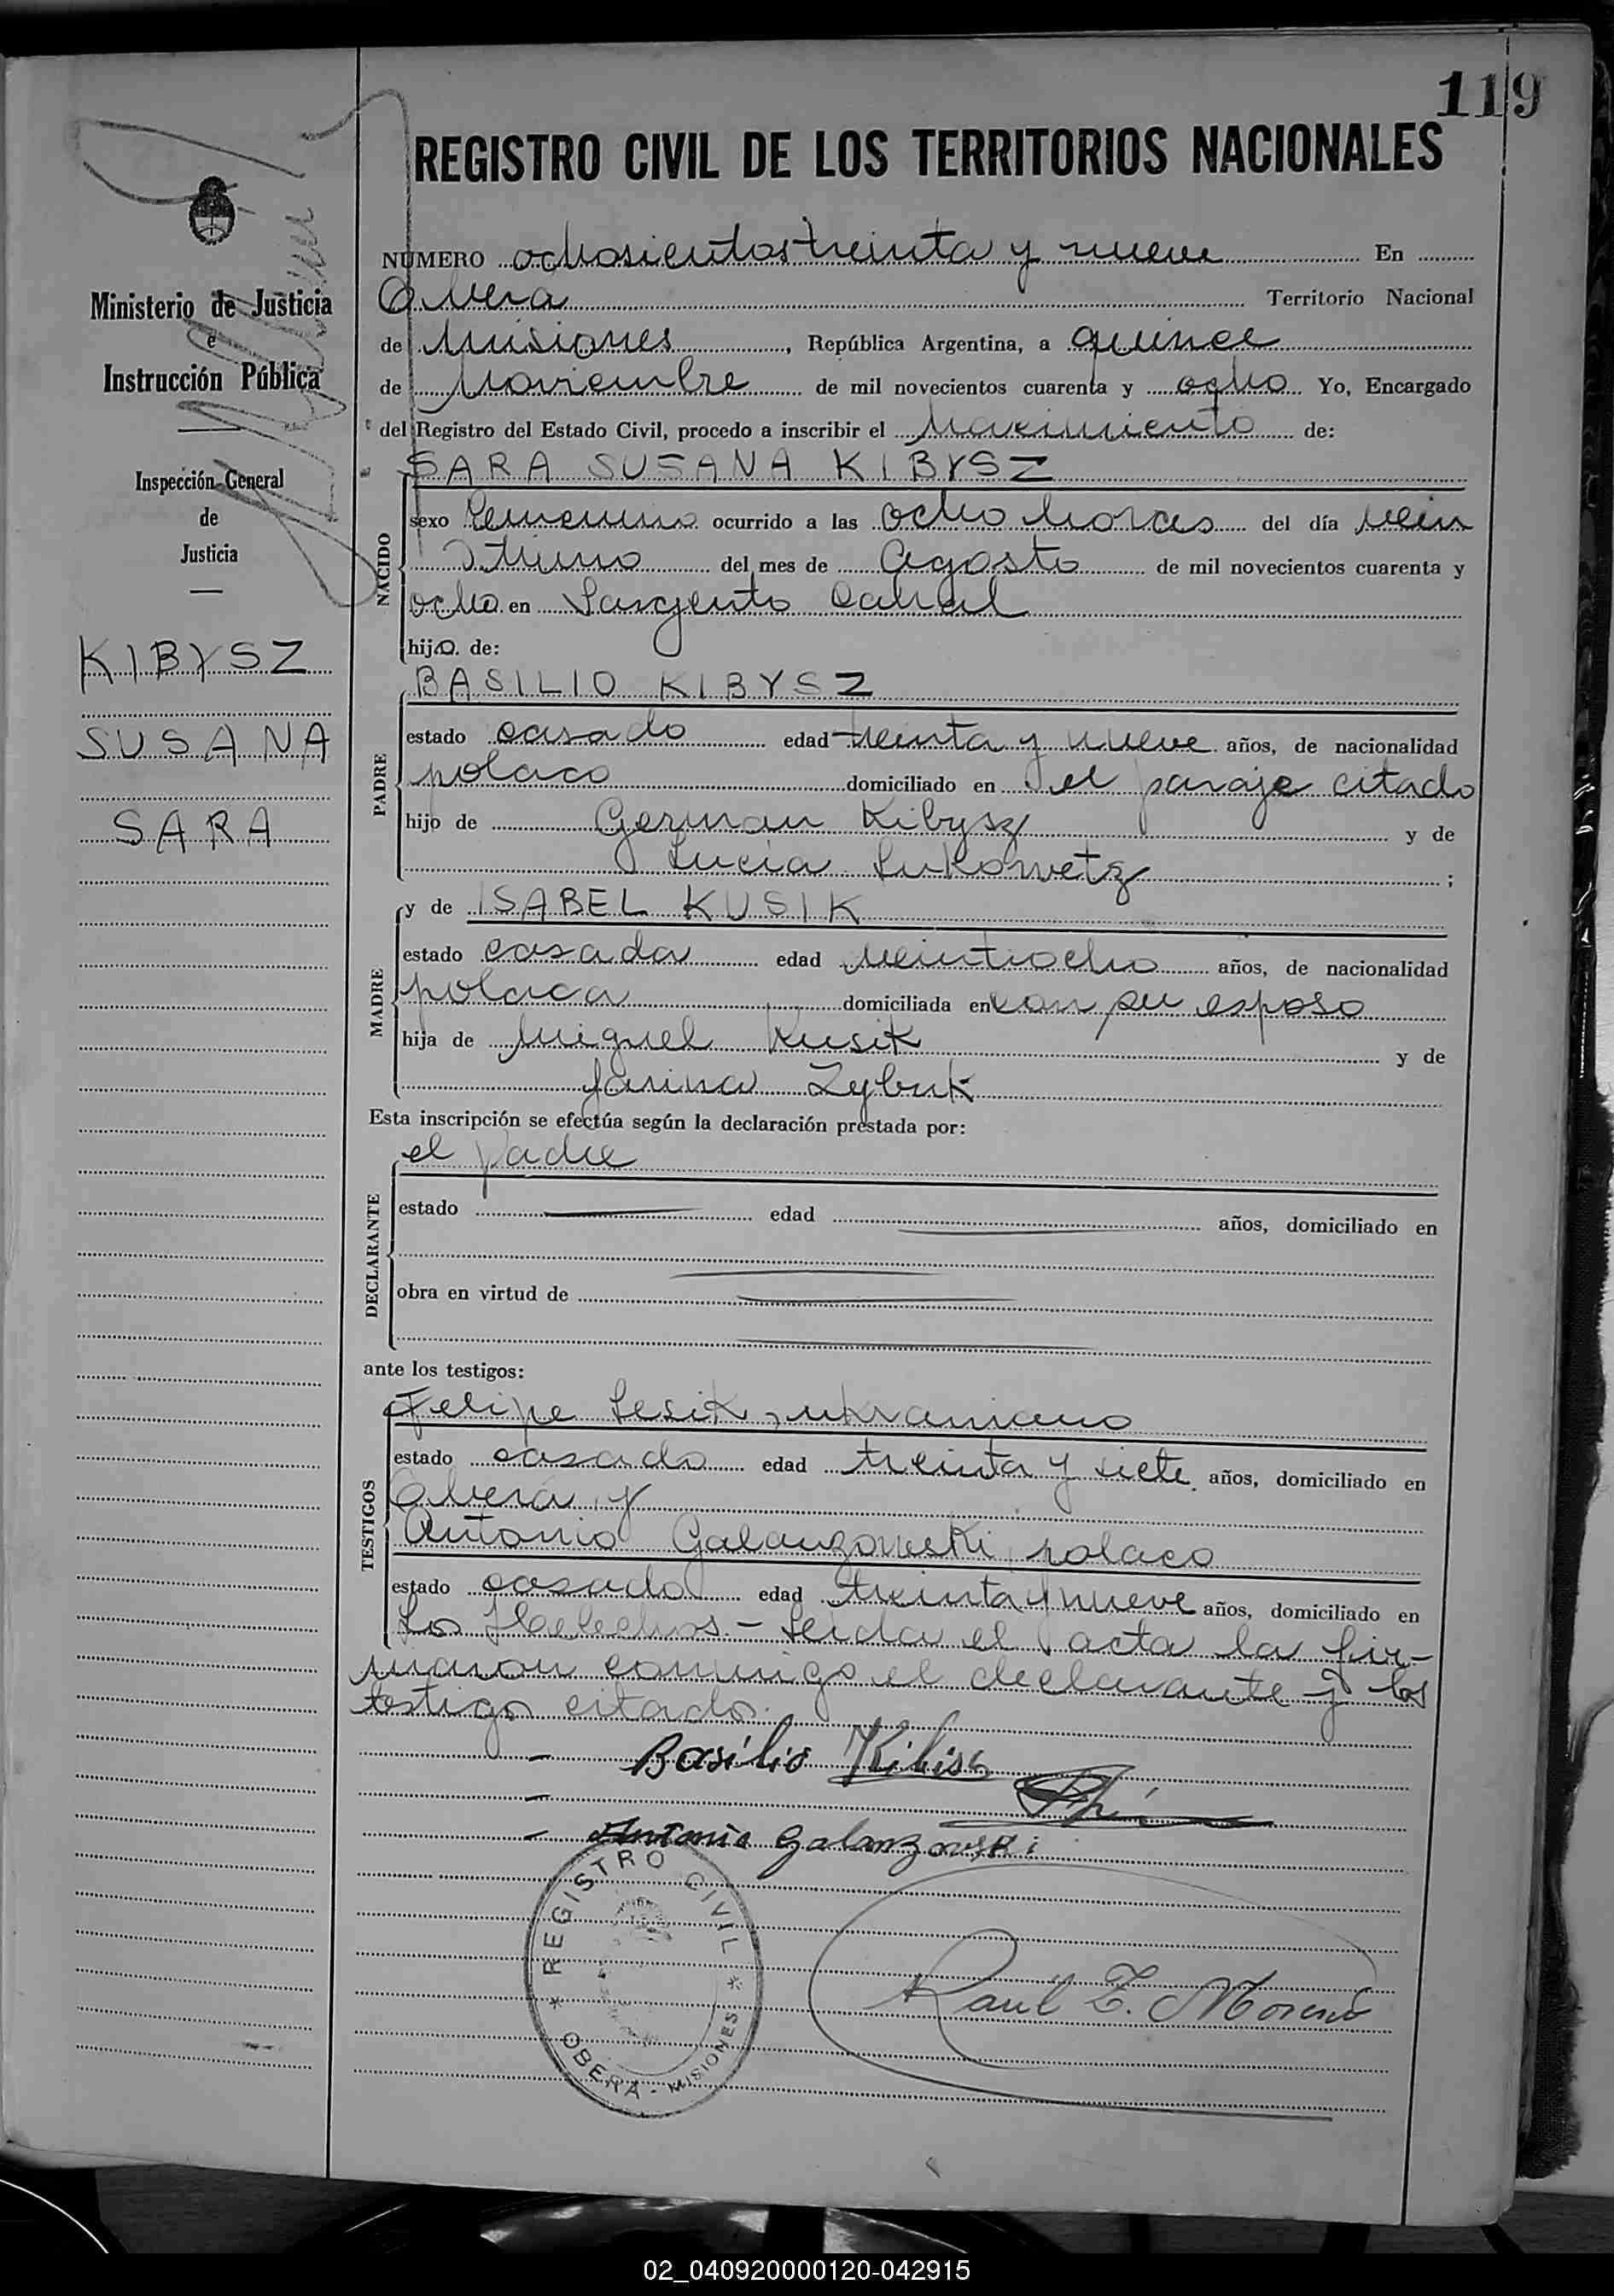 119
REGISTRO CIVIL DE LOS TERRITORIOS NACIONALES
Ministerio de Justicia
e
Instrucción Pública
Inspección General
de
Justicia
KIBYSZ
SUSANA
SARA
NUMERO ochosientos treinta y nueve En
Oberá Territorio Nacional
de Misiones, República Argentina, a quince
de Noviembre de mil novecientos cuarenta y ocho Yo, Encargado
del Registro del Estado Civil, procedo a inscribir el Nacimiento de:
SARA SUSANA KIBYSZ
NACIDO
sexo femenino ocurrido a las ocho horas del día vein
tiuno del mes de Agosto de mil novecientos cuarenta y
ocho en Sargento Cabral
hija de:
BASILIO KIBYSZ
PADRE
estado casado edad treinta y nueve años, de nacionalidad
polaco domiciliado en el paraje citado
hijo de German Kibysz y de
Lucia Sukowetz ;
y de ISABEL KUSIK
MADRE
estado casada edad veintiocho años, de nacionalidad
polaca domiciliada en con su esposo
hija de Miguel Kusik y de
Janina Zybuk
Esta inscripción se efectúa según la declaración prestada por:
el padre
DECLARANTE
estado edad años, domiciliado en
obra en virtud de
ante los testigos:
Felipe Lesik, ukraniano
TESTIGOS
estado casado edad treinta y siete años, domiciliado en
Oberá y
Antonio Galanzowski, polaco
estado casado edad treinta y nueve años, domiciliado en
Los Helechos.- Leida el acta la fir-
maron conmigo el declarante y los
testigos citados.
- Basilio Kibisz
- Antonio Galanzowski
REGISTRO CIVIL
* OBERÁ - MISIONES *
Raúl E. Moreno
02_040920000120-042915